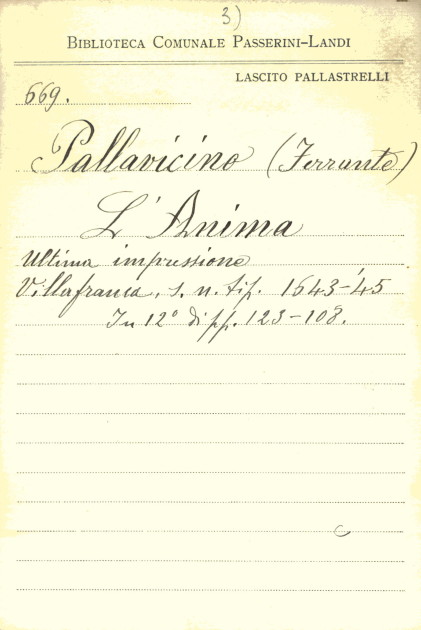 3)
BIBLIOTECA COMUNALE PASSERINI-LANDI
LASCITO PALLASTRELLI
669.
Pallavicino (Ferrante)
L'Anima
Ultima impressione
Villafranca, s. n. tip. 1643-'45
In 12° di pp. 123-108.